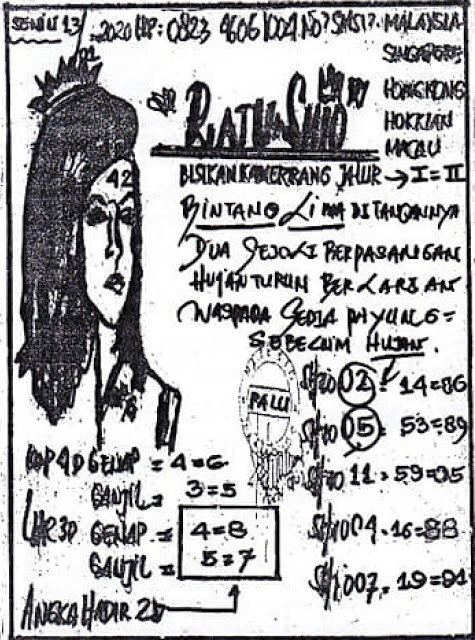 SENIN 13
2020 HP: 0823 4606 1004 NO? SMS1?
MALAYSIA
SINGAPORE
HONGKONG
HOKKIAN
MACAU
RATU SHIO
42
BISIKAN KA JALUR → I = II
BINTANG LIMA DITANGANNYA
DUA SEJOLI BERPASANGAN
HUJAN TURUN BERLARIAN
WASPADA SEDIA PAYUNG =
SEBELUM HUJAN.
PALU
SHIO 02. 14=86
SHIO 05. 53=89
SHIO 11. 59=05
SHIO 04. 16=88
SHIO 07. 19=91
KOP 4D GENAP = 4=6
GANJIL = 3=5
3D GENAP = 4=8
GANJIL = 5=7
ANGKA HADIR 2D